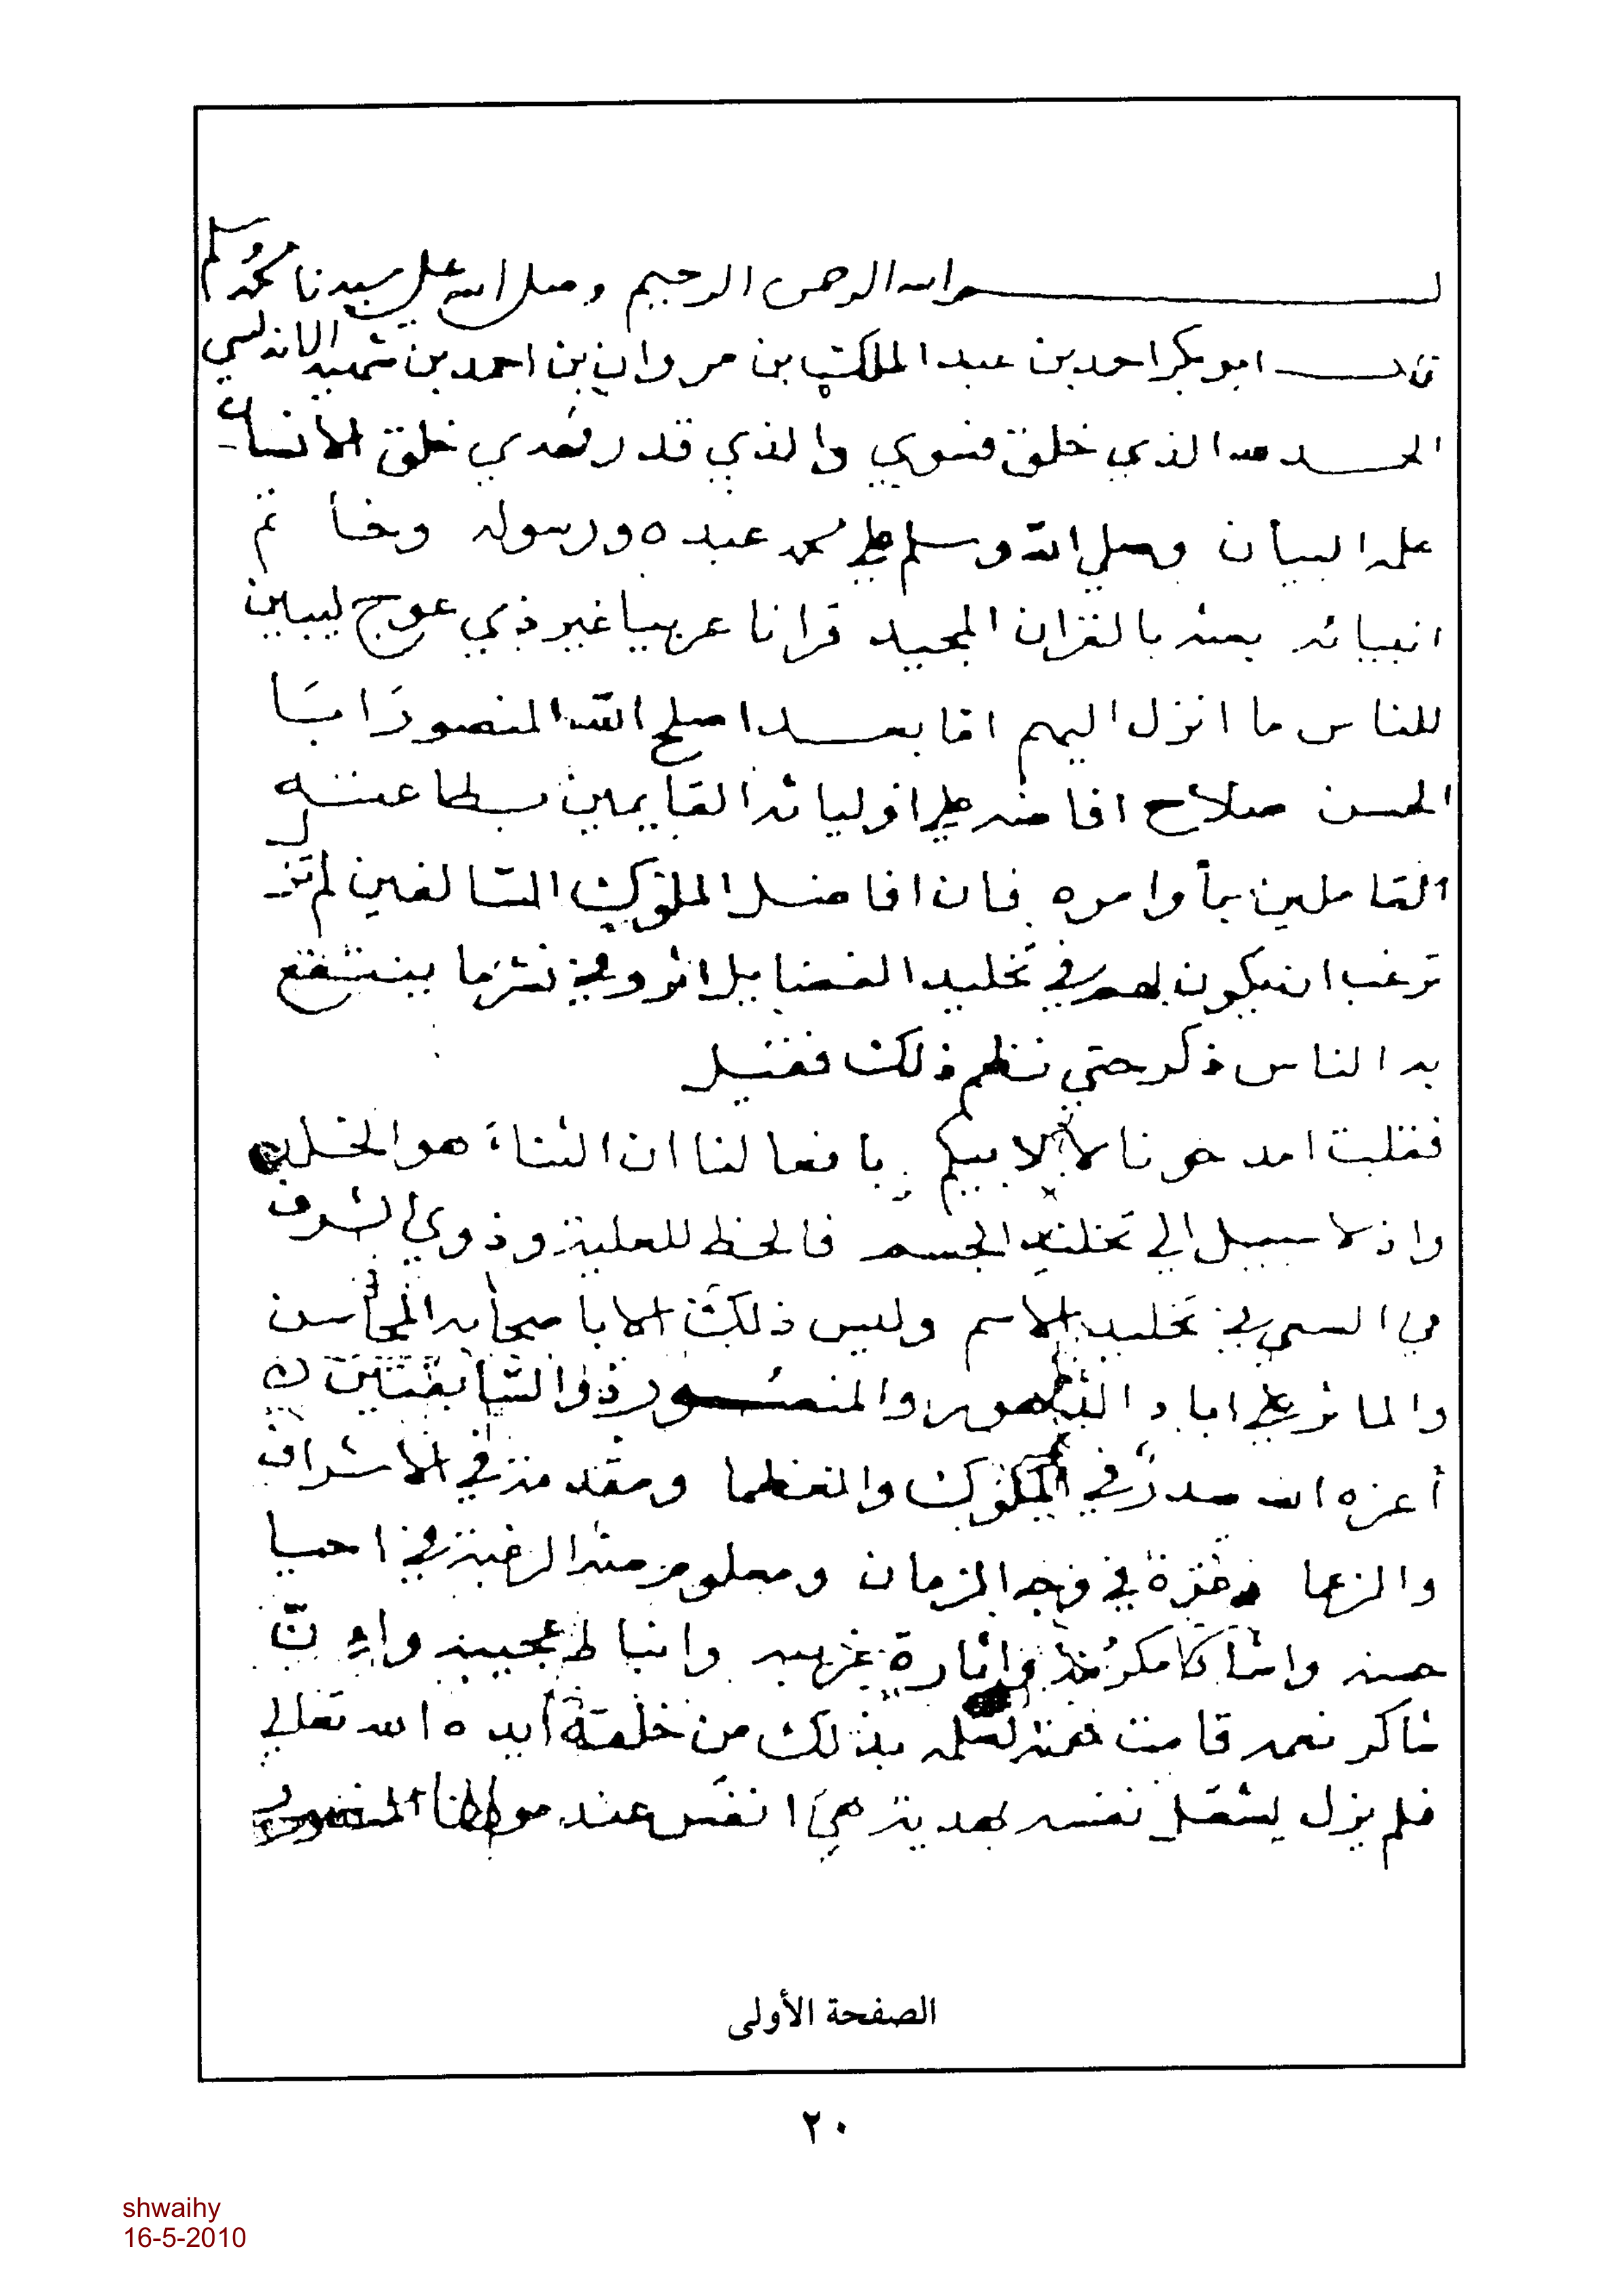 بسم الله الرحمن الرحيم وصلى الله على سيدنا محمد وسلم
قال ابو بكر احمد بن عبد الملك بن مروان بن احمد بن شهيد الاندلسي
الحمد لله الذي خلق فسوي والذي قدر فهدي خلق الانسان
علمه البيان وصلي الله وسلم على محمد عبده ورسوله وخاتم
انبيائه بعثه بالقران المجيد قرانا عربيا غير ذي عوج ليبين
للناس ما انزل اليهم اما بعد اصلح الله المنصور ابا
الحسن صلاح افاضه على اوليائه القايمين بطاعته
العاملين بأوامره فان افاضل الملوك السالفين لم تز
ترغب ان يكون لهم في تخليد الفضايل اثر وفي نشر ما ينتفع
به الناس ذكر حتي نظم ذلك فقيل
فقلت امدحونا لا لابيكم بافعالنا ان الثناء هو الخلد
واذ لا سبيل الي تخليد الجسم فالحظ للعلية وذوي الشرف
في السعي في تخليد الاسم وليس ذلك الا بايحابه المحاسن
والماثر على اباد الدهور والمنصور ذو السابقتين
أعزه الله صدر في الملوك والعظما ومقدمة في الاشراف
والزعما وغرة في وجه الزمان ومعلوم منه الرغبة في احيا
حسنه وانشا مكرمة واثارة غريبه وانباط عجيبة وان
شاكر نعمه قامت لعلمه بذلك من خلقة أيده الله تعالي
فلم يزل يشغل نفسه بهدية هي انفس عند مولانا المنصور
الصفحة الأولى
٢٠
shwaihy
16-5-2010